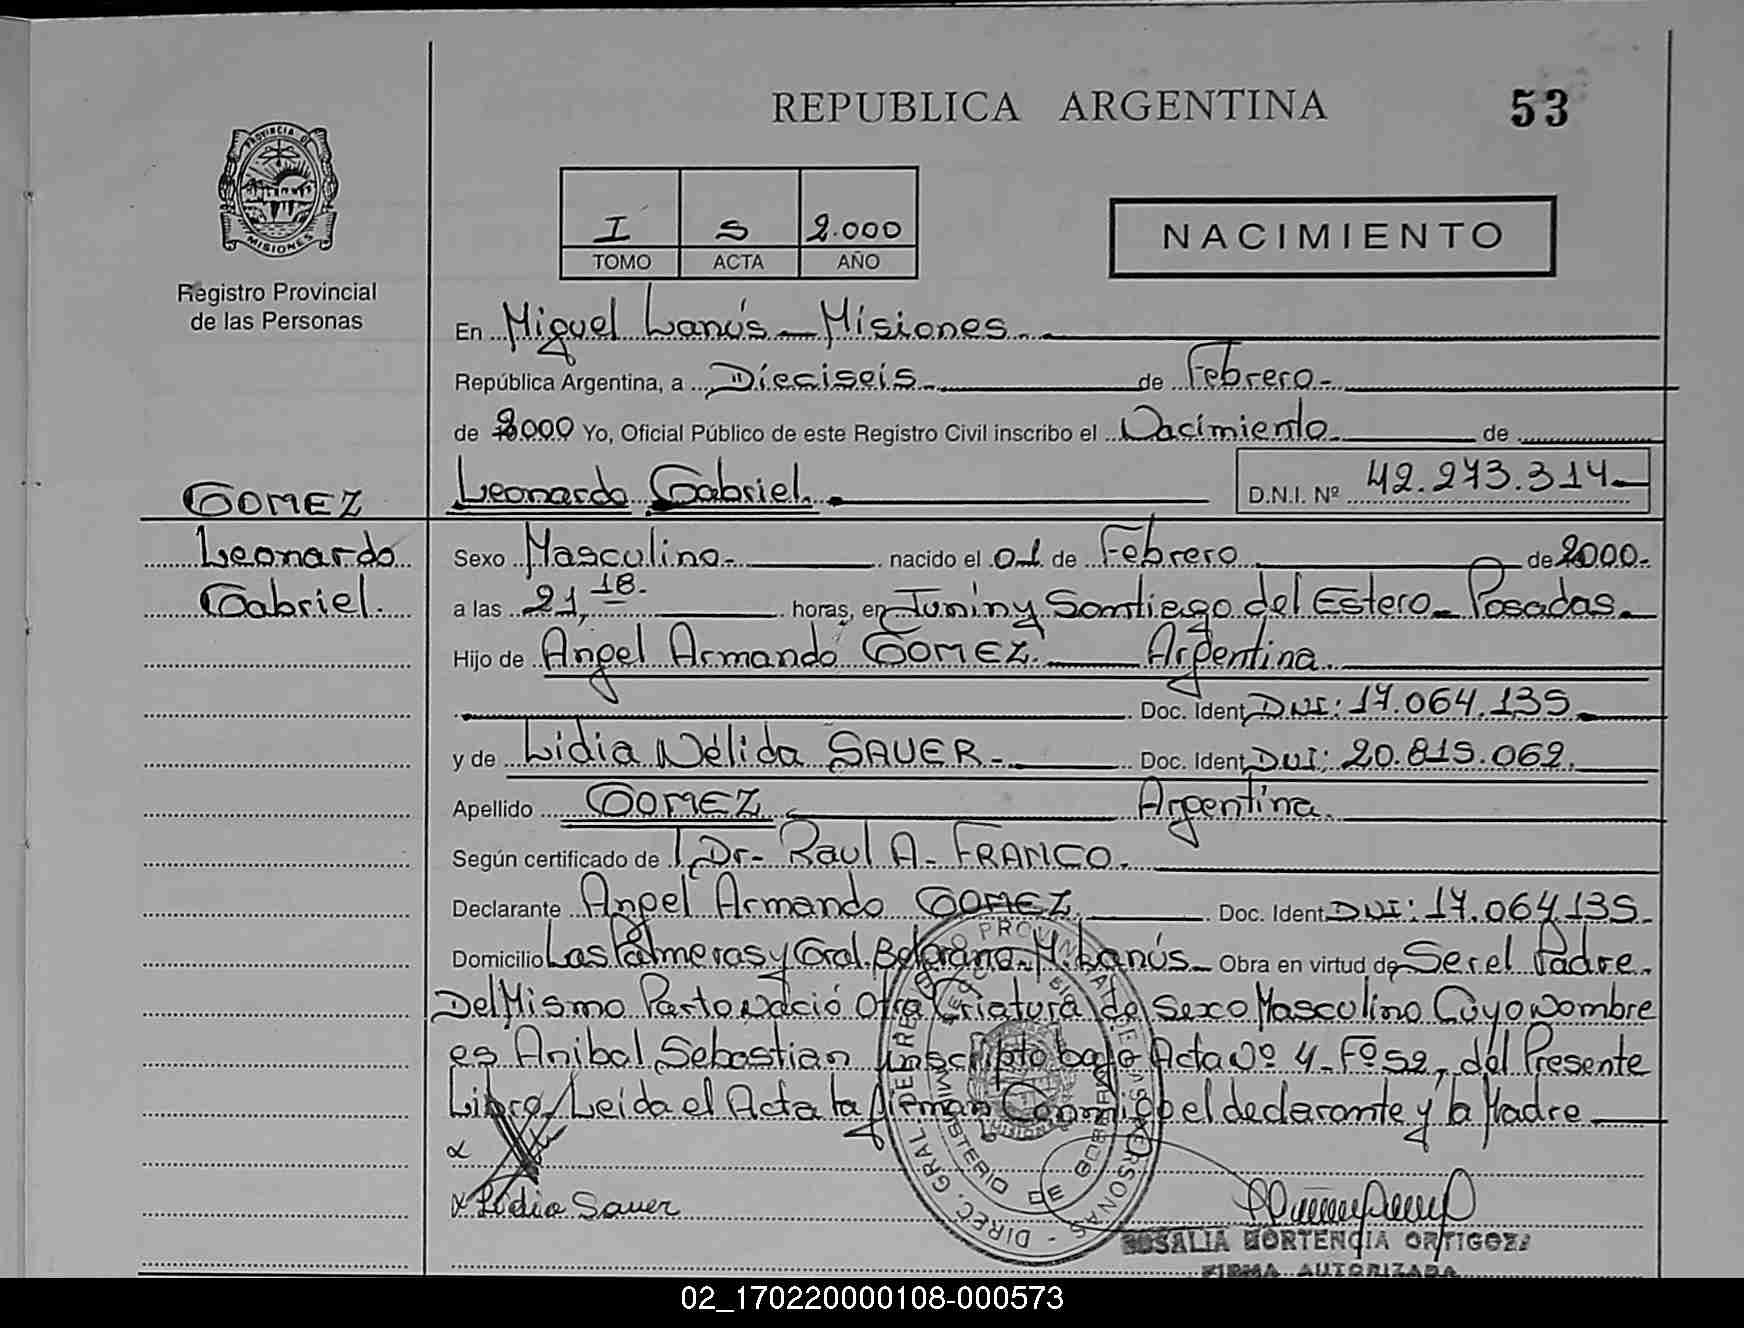 REPUBLICA ARGENTINA 53
PROVINCIA D
MISIONES
Registro Provincial
de las Personas
I S 2.000
TOMO ACTA AÑO
NACIMIENTO
En Miguel Lanús - Misiones.-
República Argentina, a Dieciseis.- de Febrero.-
de 2000 Yo, Oficial Público de este Registro Civil inscribo el Nacimiento. de
Leonardo Gabriel. D.N.I. Nº 42.273.314-
GOMEZ
Leonardo
Gabriel.
Sexo Masculino.- nacido el 01 de Febrero de 2000.-
a las 21,18. horas, en Junin y Santiago del Estero - Posadas.-
Hijo de Angel Armando GOMEZ. Argentina.
Doc. Ident. DNI: 17.064.135
y de Lidia Nélida SAUER.- Doc. Ident. DNI: 20.815.062.
Apellido GOMEZ Argentina.
Según certificado de Dr- Raul A- FRANCO.
Declarante Angel Armando GOMEZ, Doc. Ident. DNI: 17.064.135-
Domicilio Las Palmeras y Gral. Belgrano - M. Lanús - Obra en virtud de Ser el Padre.
Del Mismo Parto Nació Otra Criatura de Sexo Masculino Cuyo Nombre
es Anibal Sebastian inscripto bajo Acta Nº 4 - Fº 52, del Presente
Libro. Leida el Acta la firman Conmigo el declarante y la Madre
x
x Lidia Sauer
DIREC. GRAL. DEL REGISTRO PROVINCIAL DE LAS PERSONAS
MINISTERIO DE GOBIERNO
MISIONES
ROSALIA HORTENCIA ORTIGOZA
FIRMA AUTORIZADA
02_170220000108-000573